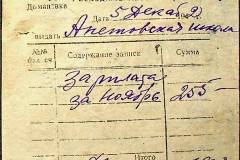 Доманівка
Дата 5 Дека
выдать
Апетовская школа
№№ Содержание записи
зарплата
за ноябрь 255-
Итого